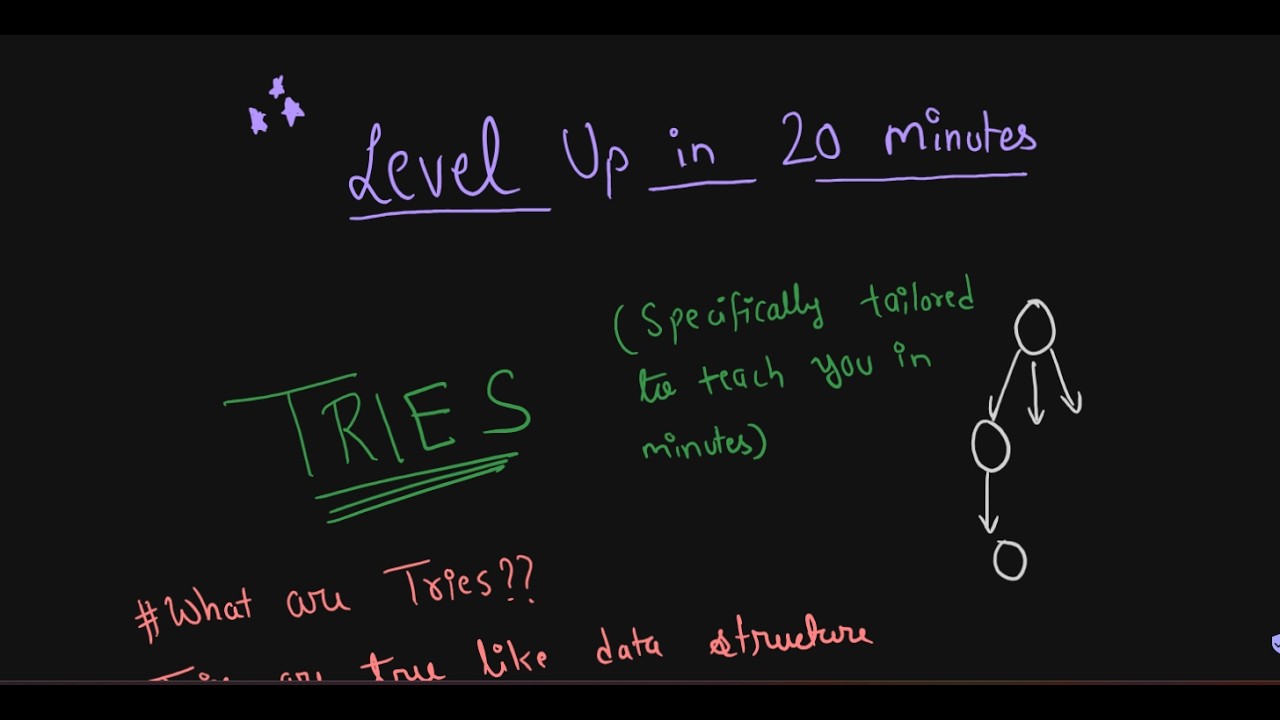 Level Up in 20 minutes
(Specifically tailored
to teach you in
minutes)
TRIES
#What are Tries??
are tree like data structure